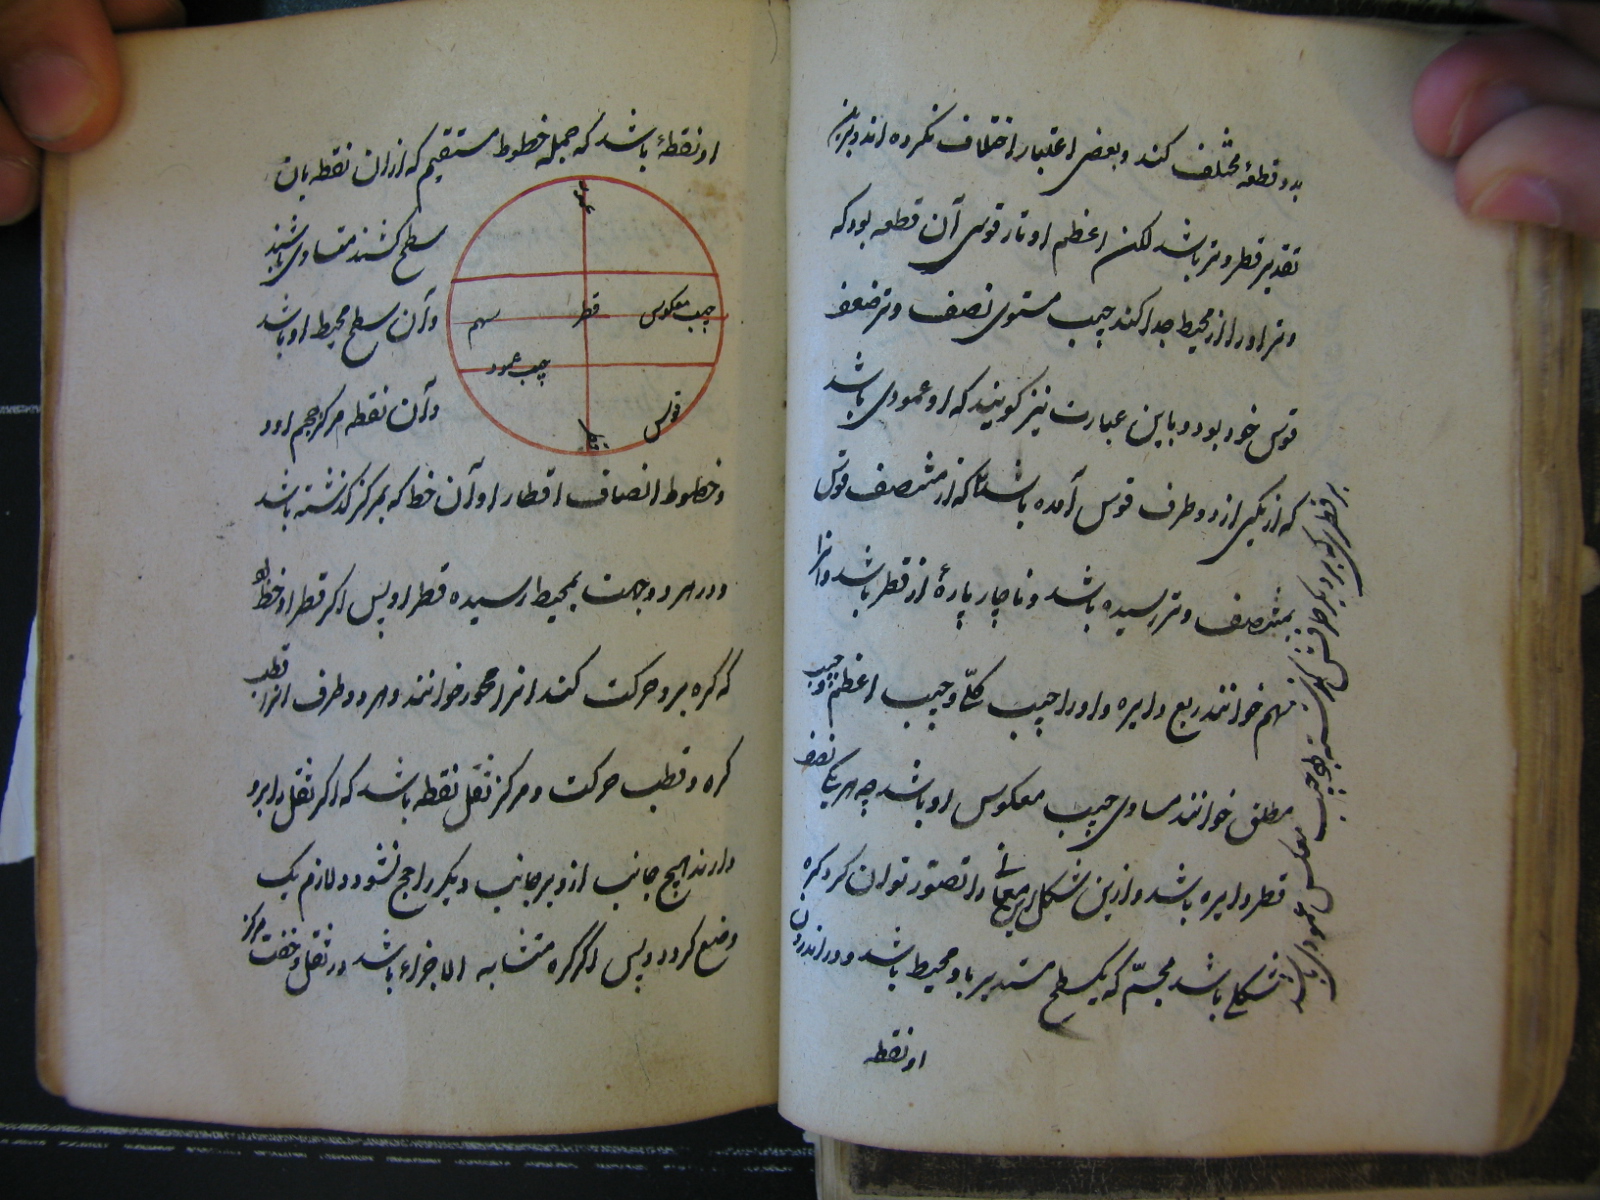 بدو قطعهٔ مختلف کند و بعضی اعتبار اختلاف نکرده اند و برین
تقدیر قطر وتر باشد لکن اعظم اوتار قوسی آن قطعه بود که
وتر او را از محیط جدا کند جیب مستوی نصف وتر ضعف
قوس خود بود و باین عبارت نیز گویند که او عمودی باشد
که از یکی از دو طرف قوس آمده باشد که از منتصف قوس
بمنتصف وتر رسیده باشد و ناچار پارهٔ از قطر باشد و انرا
سهم خوانند ربع دایره و او را جیب کلّی و جیب اعظم و جیب
مطلق خوانند مساوی جیب معکوس او باشد چه هر یک نصف
قطر دایره باشد و ازین شکل این معانی را تصور توان کرد کره
شکلی باشد مجسّم که یک سطح مستدیر باو محیط باشد و در اندرون
او نقطه
بر قطری که بر دیگر طرفش گذشته باشد جیب معکوس عمودی باشد
او نقطهٔ باشد که جمله خطوط مستقیم که از ان نقطه بان
سطح کشند متساوی باشند
و آن سطح محیط او باشد
و آن نقطه مرکز حجم او و
جیب معکوس
قطر
سهم
جیب عمود
قوس
و خطوط انصاف اقطار او آن خط که بمرکز گذشته باشد
و در هر دو جهت بمحیط رسیده قطر او پس اگر قطر او خطی بود
که کره برو حرکت کند انرا محور خوانند و هر دو طرف انرا قطب
کره و قطب حرکت و مرکز ثقل نقطه باشد که اگر ثقل را برو
دارند هیچ جانب ازو بر جانب دیگر راجح نشود و لازم یک
وضع کردد و پس اگر کره متشابه الاجزاء باشد در ثقل و خفت مرکز